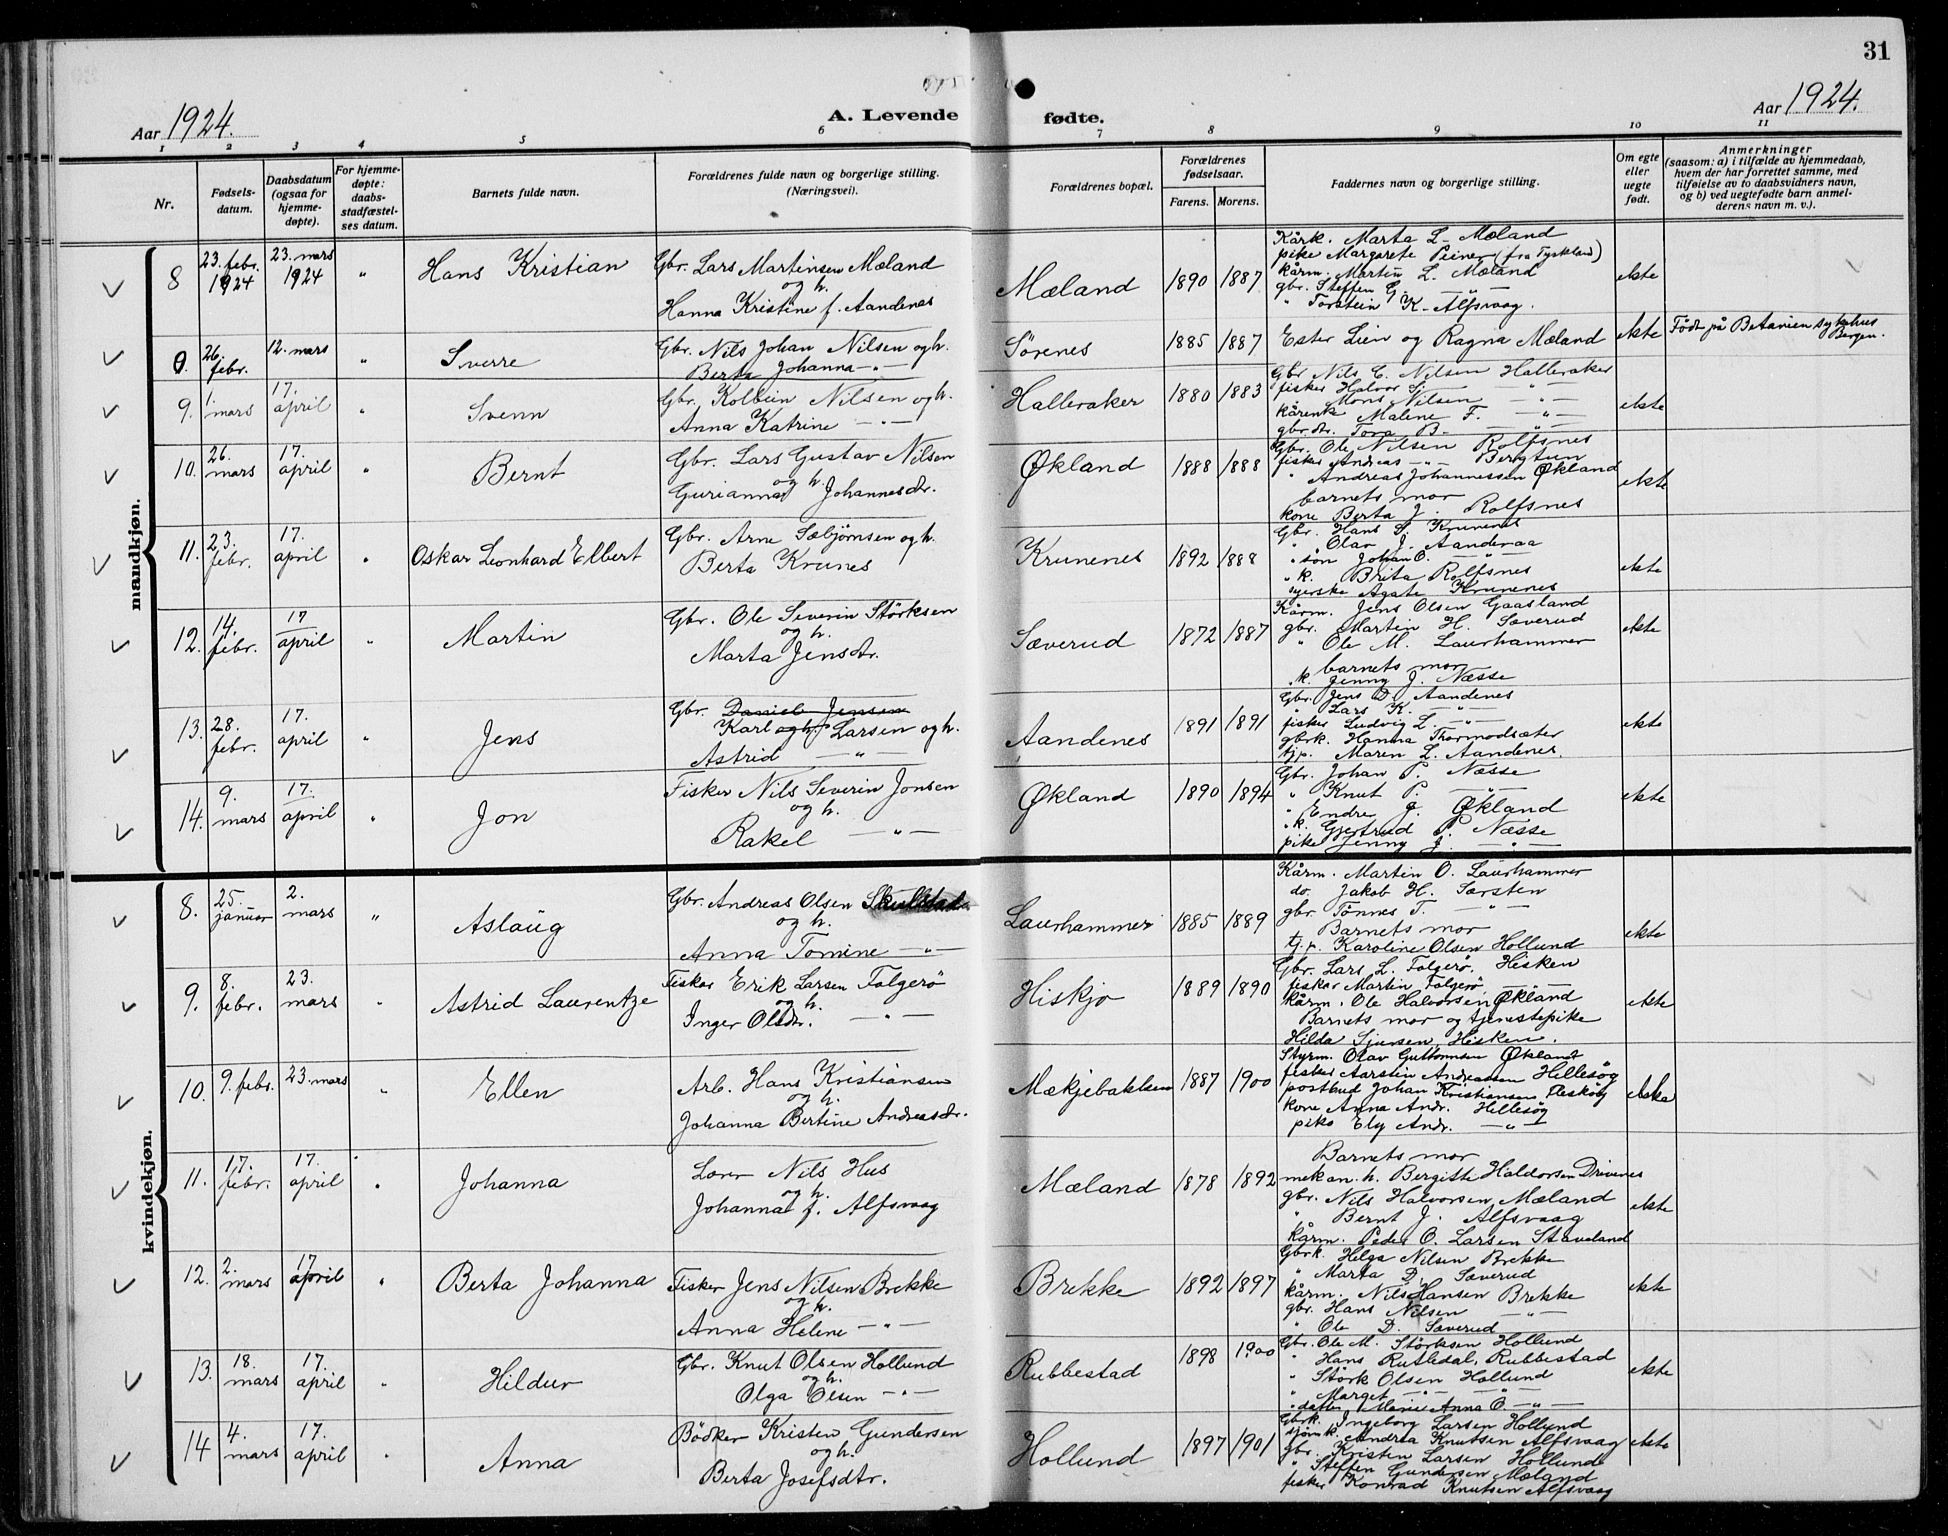 31
Aar 1924.
A. Levende
fødte.
Aar 1924.
1 2 3 4 5 6 7 8 9 10 11
Nr.
Fødsels-
datum.
Daabsdatum
(ogsaa for
hjemme-
døpte).
For hjemme-
døpte:
daabs-
stadfæstel-
ses datum.
Barnets fulde navn.
Forældrenes fulde navn og borgerlige stilling.
(Næringsvei).
Forældrenes bopæl.
Forældrenes
fødselsaar.
Farens. Morens.
Faddernes navn og borgerlige stilling.
Om egte
eller
uegte
født.
Anmerkninger
(saasom: a) i tilfælde av hjemmedaab,
hvem der har forrettet samme, med
tilføielse av to daabsvidners navn,
og b) ved uegtefødte barn anmel-
derens navn m. v.).
mandkjøn.
8 23. febr. 1924 23. mars 1924 " Hans Kristian
Gbr. Lars Martinsen Mæland
og h.
Hanna Kristine f. Aandenes
Mæland 1890 1887
Kårk. Marta L. Mæland
pike Margarete Peiner (fra Tyskland)
kårm. Martin L. Mæland
gbr. Steffen G. — " —
" Torstein K. Alfsvaag.
ekte
9. 26. febr. 12. mars " Sverre
Gbr. Nils Johan Nilsen og h.
Berta Johanna — " —
Sørenes 1885 1887
Ester Lien og Ragna Mæland
ekte
Født på Betanien sykehus
Bergen.
9. 1. mars 17. april " Svenn
Gbr. Kolbein Nilsen og h.
Anna Katrine — " —
Halleraker 1880 1883
Gbr Nils C. Nilsen Halleraker
fisker Halvor S. — " —
Mons Nilsen — " —
kårenk Malene F. — " —
gbr.dr. Tora B. — " —
ekte
10. 26. mars 17. april " Bernt
Gbr. Lars Gustav Nilsen
og h.
Gurianna Johannesdr.
Økland 1888 1888
Gbr. Ole Nilsen Rolfsnes
fisker Andreas — " — Bergtun
" Andreas Johannessen Økland
barnets mor
kone Berta J. Rolfsnes
ekte
11. 23. febr. 17. april " Oskar Leonhard Elbert
Gbr. Arne Sæbjørnsen og h.
Berta Krunes
Krunenes 1892 1888
Gbr. Hans S. Krunenes
" Olav J. Aanderaa
" søn Johan O. — " —
" k. Brita Rolfsnes
syerske Agate Krunenes
ekte
12. 14. febr. 17 april " Martin
Gbr. Ole Severin Størksen
og h.
Marta Jensdr.
Sæverud 1872 1887
Kårm. Jens Olsen Gaasland
gbr. Martin H. Sæverud
" Ole M. Laurhammer
barnets mor
" k. Jenny J. Næsse
ekte
13. 28. febr. 17. april " Jens
Gbr. Daniel Jensen
Karl og h. Larsen og h.
Astrid — " —
Aandenes 1891 1891
Gbr. Jens D. Aandenes
" Lars K. — " —
fisker Ludvig L. — " —
gbrk. Hanna Thormodsæter
tj.p. Maren L. Aandenes.
ekte
14. 9. mars 17. april " Jon
Fisker Nils Severin Jonsen
og h.
Rakel — " —
Økland 1890 1894
Gbr. Johan P. Næsse
" Knut P. — " —
" Endre J. Økland
" k. Gjertrud P. Næsse
pike Jenny J. — " —
ekte
kvindekjøn.
8. 25. januar 2. mars " Aslaug
Gbr. Andreas Olsen
og h.
Anna Tomine — " —
Laurhammer 1885 1889
Kårm. Martin O. Laurhammer
do. Jakob H. Sørsten
gbr. Tønnes T. — " —
Barnets mor
tj.p. Karoline Olsen Hollund
ekte
9. 8. febr. 23. mars " Astrid Laurentze
Fisker Erik Larsen Folgerø
og h.
Inger Olsdr. — " —
Hiskjo 1889 1890
Gbr. Lars L. Folgerø, Hisken
fisker Martin Folgerø — " —
kårm. Ole Halvorsen Økland
Barnets mor og tjenestepike
Hilda Sjursen, Hisken.
ekte
10. 9. febr. 23. mars " Ellen
Arb. Hans Kristiansen
og h.
Johanna Bertine Andreasdr.
Mækjebakken 1887 1900
Styrm. Olav Guttormsen Økland
fisker Aarstein Andreassen Hillesøy
postbud Johan Kristiansen
kone Anna Andr. Hillesøy
pike Ely Andr. — " —
11. 17. febr. 17. april " Johanna
Lærer Nils Hus
og h.
Johanna f. Alfsvaag
Mæland 1878 1892
Barnets mor
mekan. h. Bergitte Haldorsen Drivenes
gbr. Nils Halvorsen Mæland
" Bernt J. Alfsvaag
kårm. Peder O. Larsen Staveland
ekte
12. 2. mars 17 april " Berta Johanna
Fisker Jens Nilsen Brekke
og h.
Anna Helene — " —
Brekke 1892 1897
Gbrk. Helga Nilsen Brekke
" Marta D. Sæverud
kårm. Nils Hansen Brekke
gbr. Hans Nilsen — " —
" Ole D. Sæverud
ekte
13. 18. mars 17. april " Hildur
Gbr. Knut Olsen Hollund
og h.
Olga Olsen — " —
Rubbestad 1898 1900
Gbr. Ole M. Størksen Hollund
" Hans Rutledal, Rubbestad
" Størk Olsen Hollund
" Marget — " — — " —
" datter Marie Anna O. — " —
ekte
14 4. mars 17. april " Anna
Bødker Kristen Gundersen
og h.
Berta Josefsdtr.
Hollund 1897 1901
Gbrk. Ingeborg Larsen Hollund
sjøm.k. Andrea Knutsen Alfsvaag
gbr. Kristen Larsen Hollund
" Steffen Gundersen Mæland
fisker Konrad Knutsen Alfsvaag
ekte